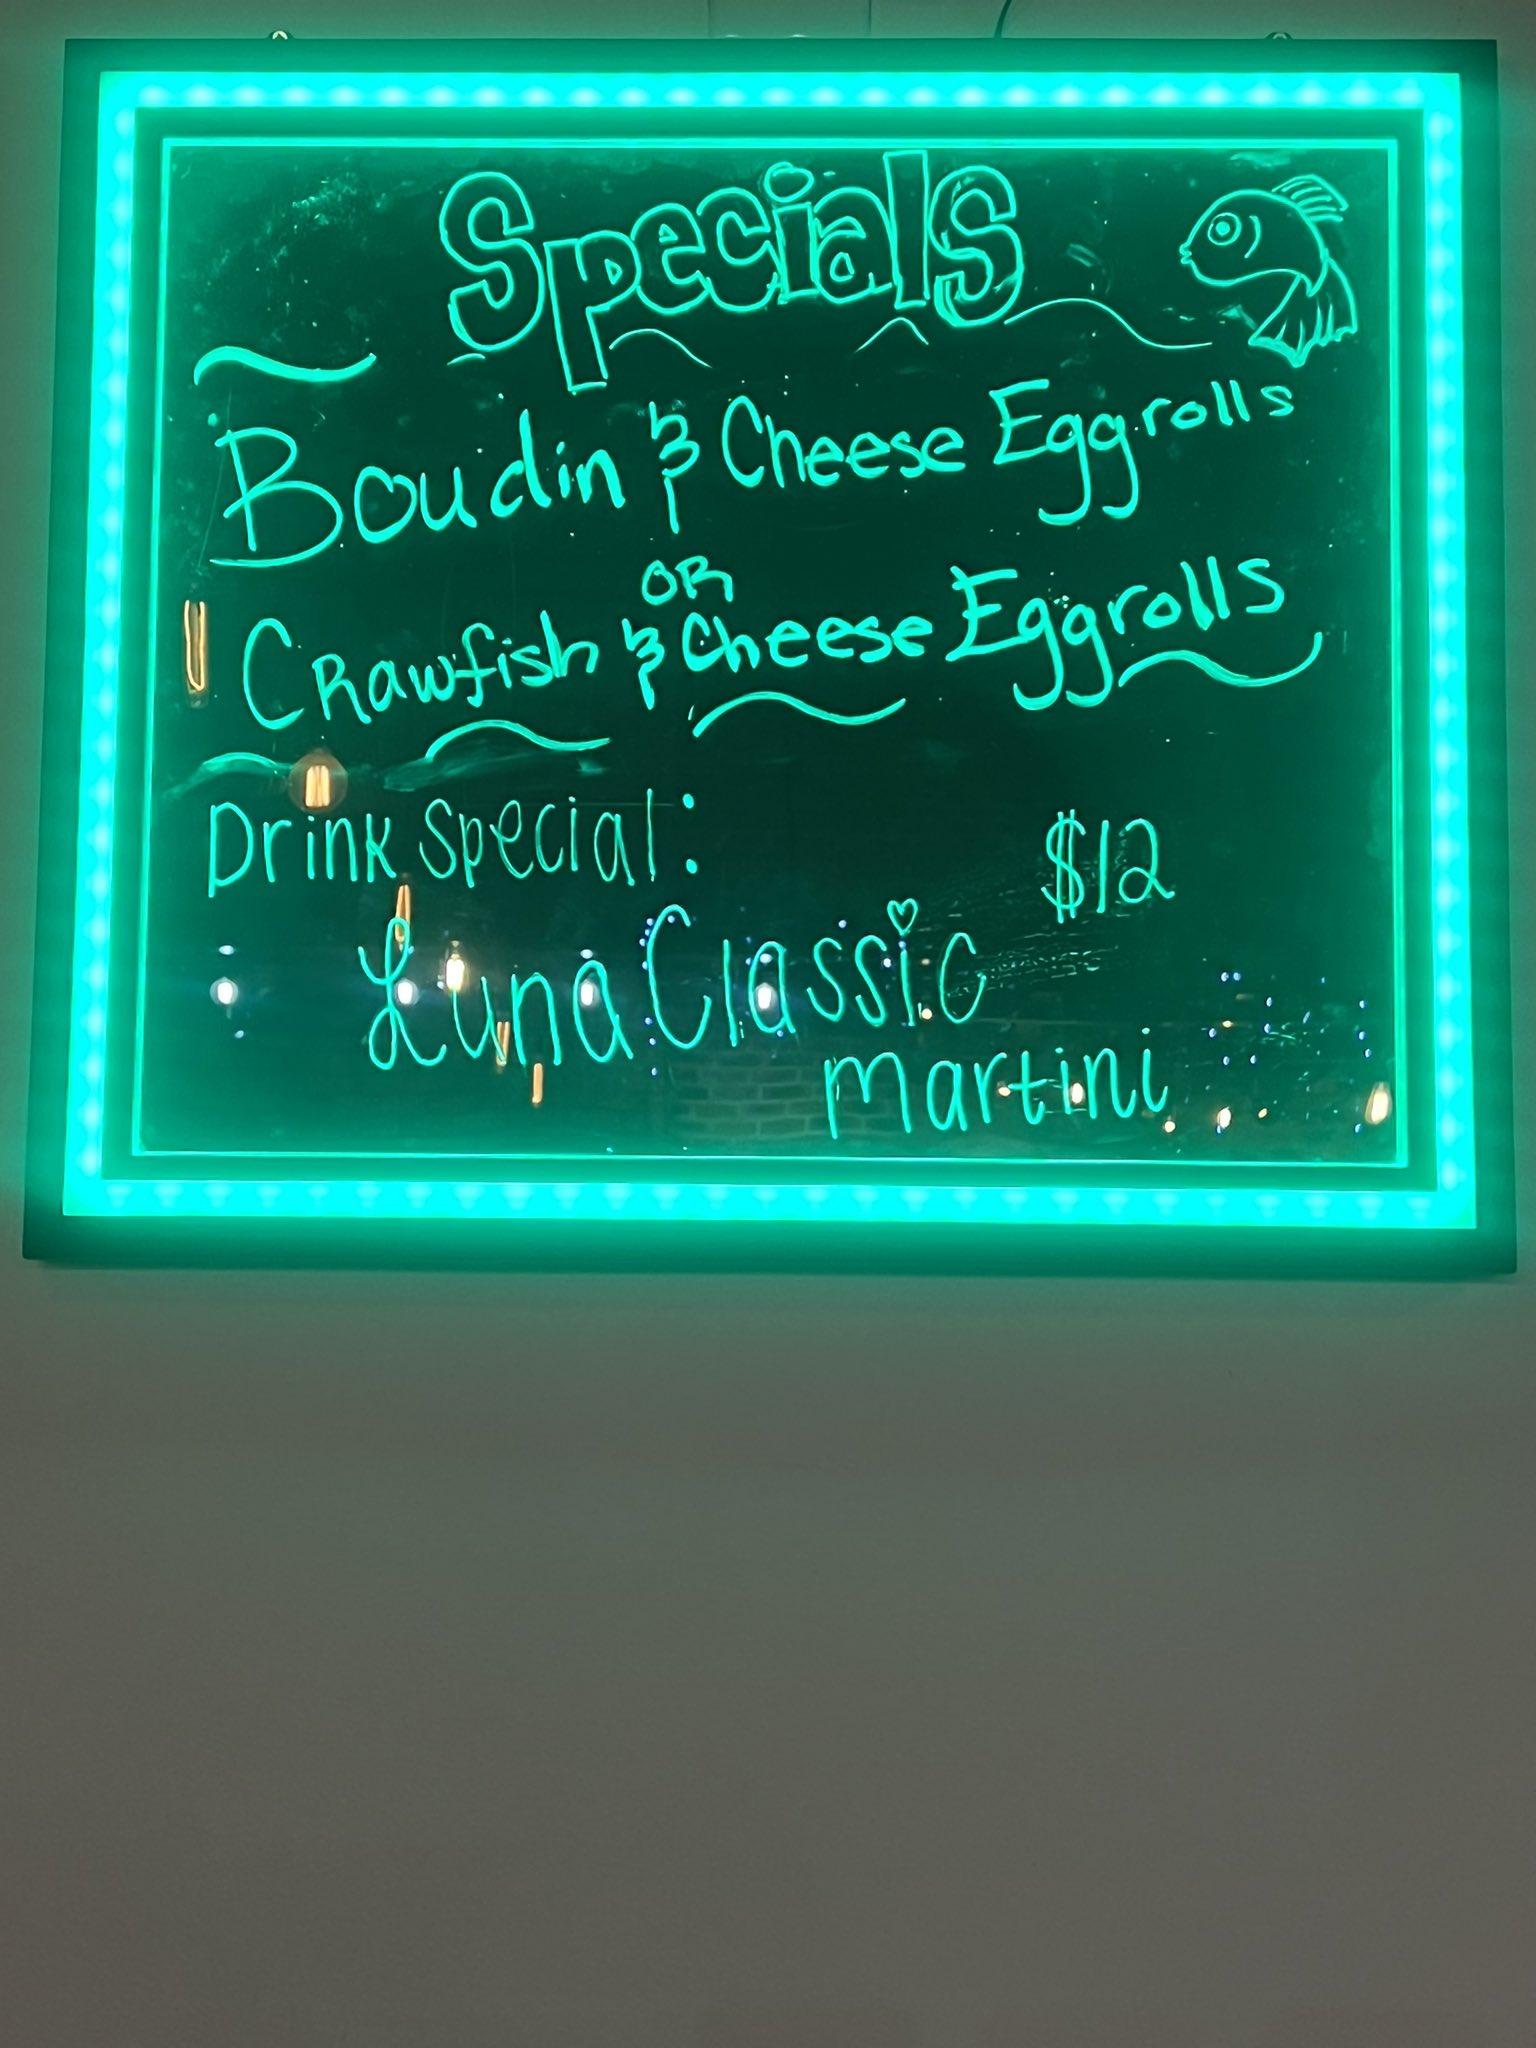 Specials
Boudin & Cheese Eggrolls
OR
Crawfish & Cheese Eggrolls
Drink Special: $12
Luna Classic
Martini